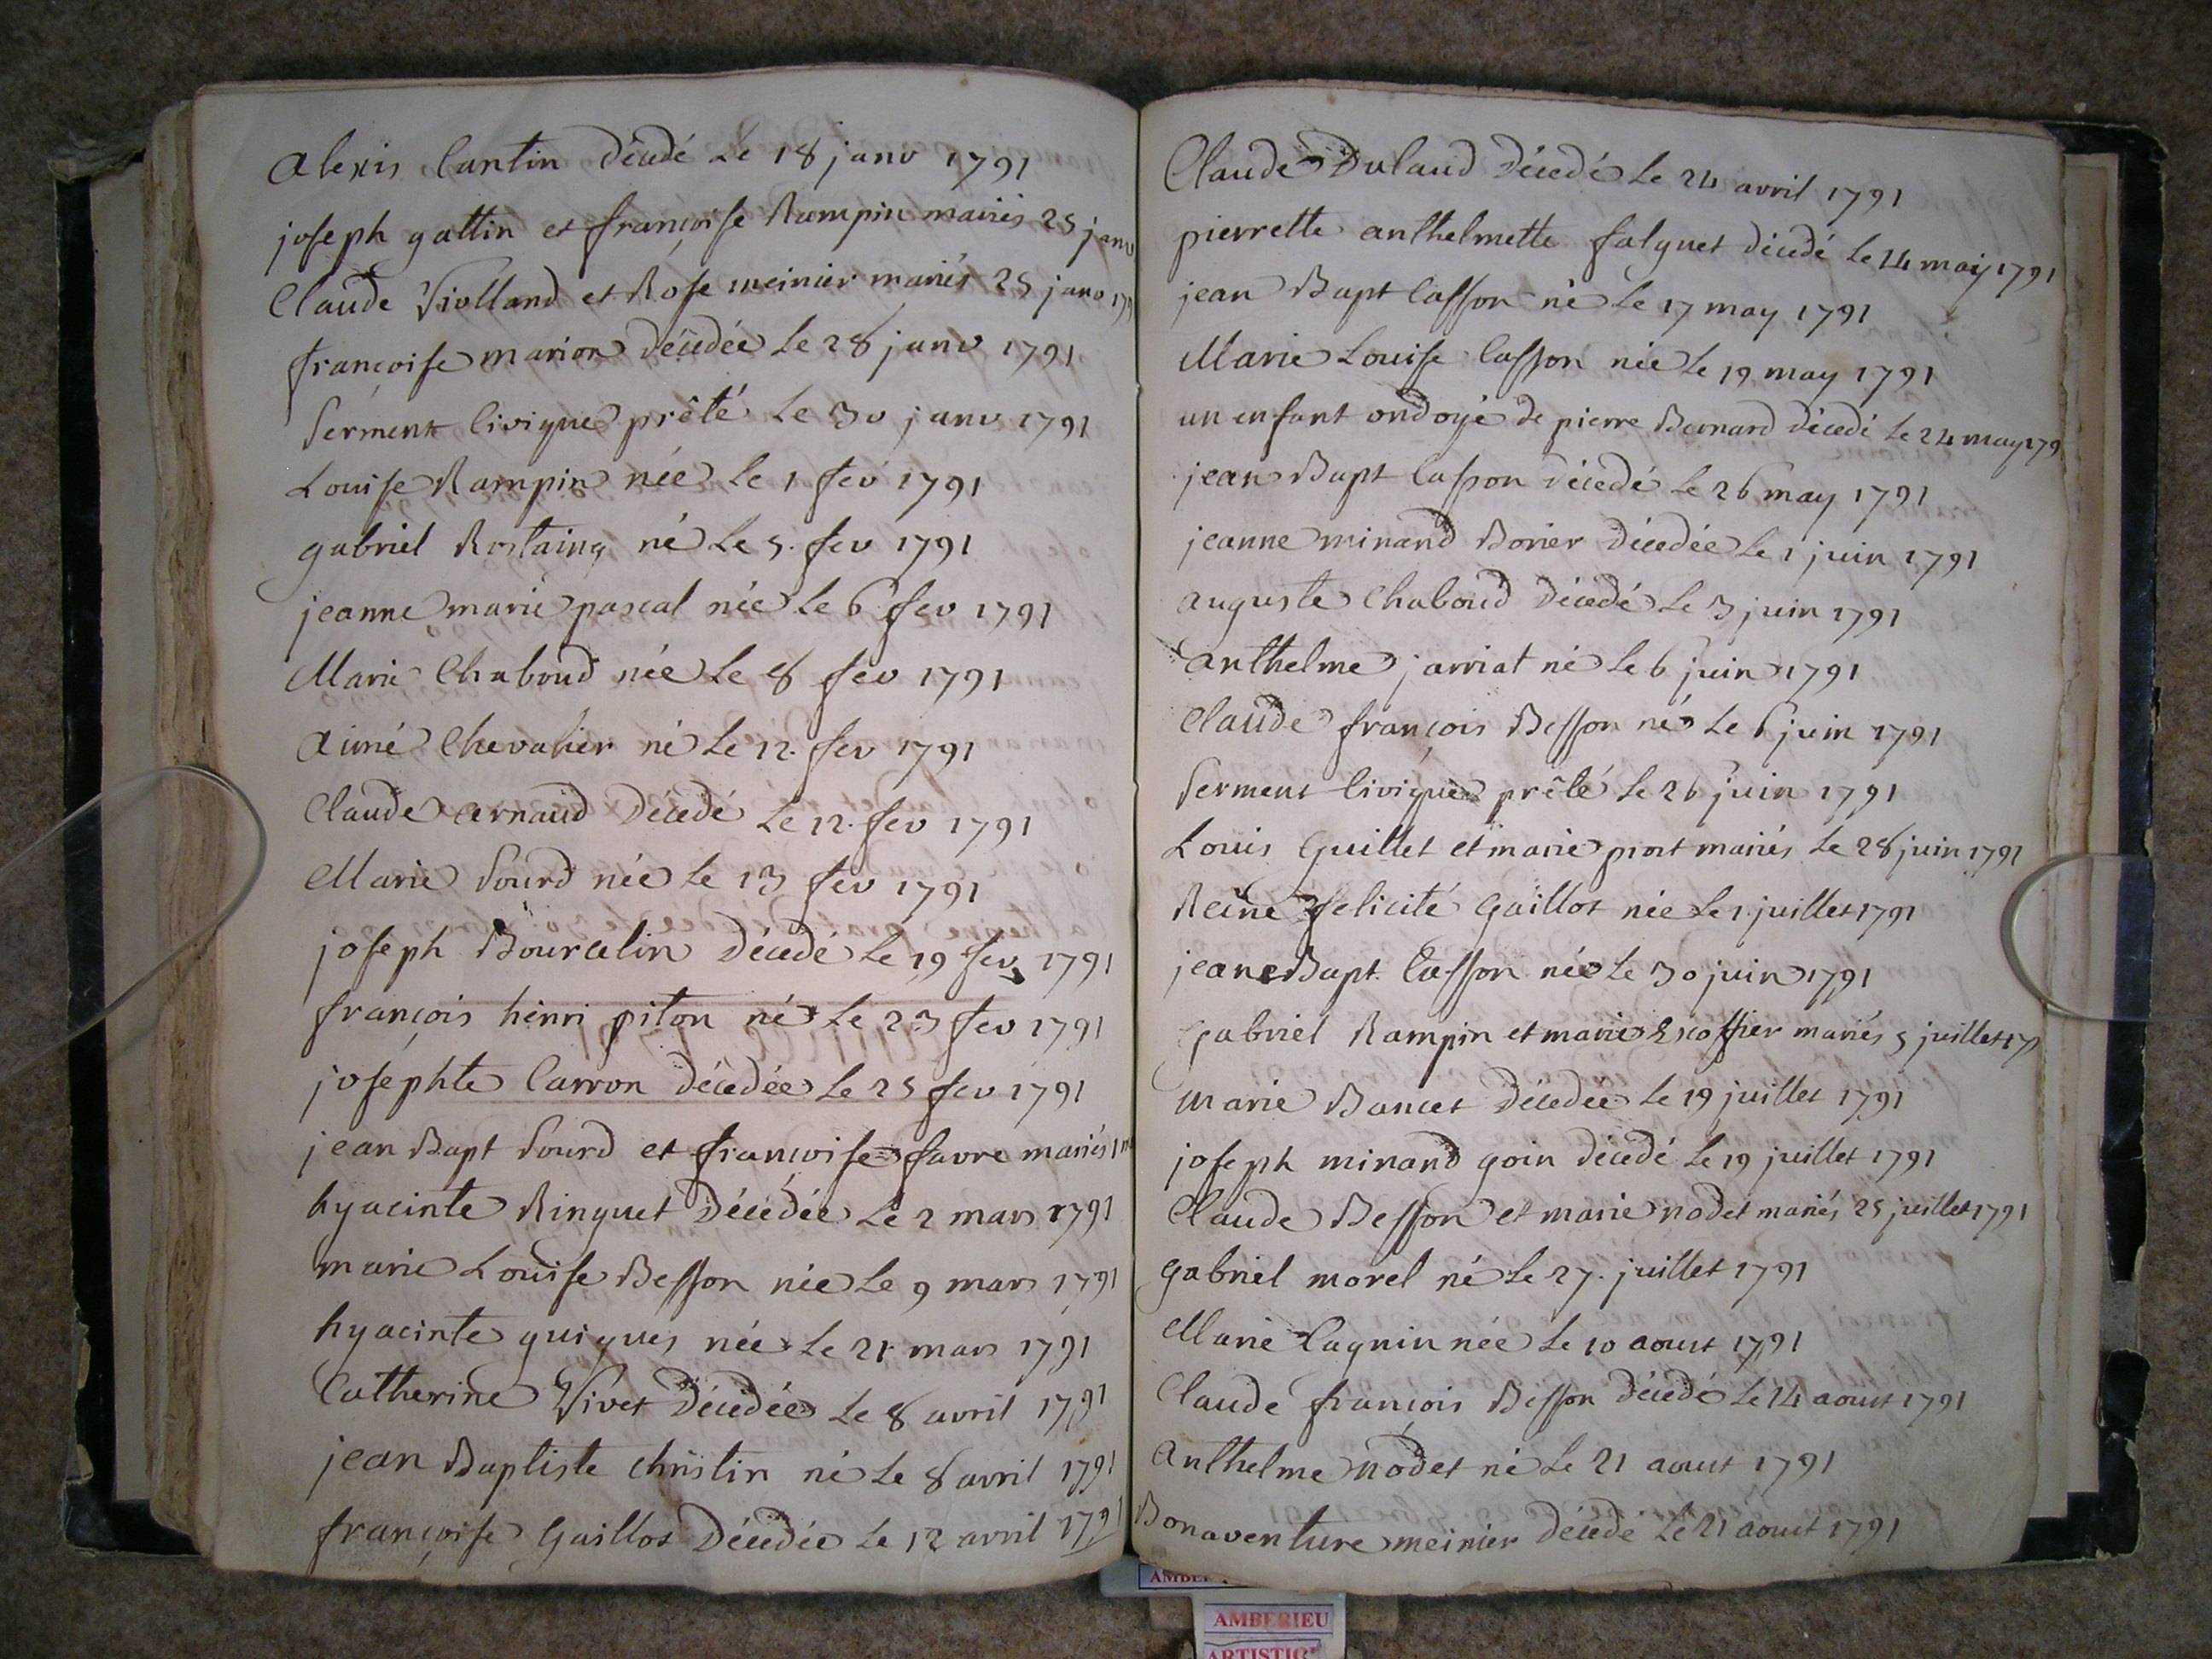 alexis Cantin décédé Le 18 janv 1791
joseph gattin et françoise Rampin mariés 25 janv
Claude Violland et Rose meinier mariés 25 janv 179
françoise marion décédée Le 28 janv 1791
Serment Civique prêté Le 30 janv 1791
Louise Rampin née Le 1 fev 1791
gabriel Rostaing né Le 5. fev 1791
jeanne marie pascal née Le 6 fev 1791
Marie Chaboud née Le 8 fev 1791
aimé Chevalier né Le 12. fev 1791
Claude arnaud décédé Le 12. fev 1791
Marie Sourd née Le 13 fev 1791
joseph Bourcelin décédé Le 19 fev 1791
françois henri piton né Le 23 fev 1791
josephte Carron décédée Le 25 fev 1791
jean Bapt Sourd et françoise favre mariés 1
hyacinte Ringuet décédée Le 2 mars 1791
marie Louise Besson née Le 9 mars 1791
hyacinte guigues née Le 21 mars 1791
Catherine Vivet décédée Le 8 avril 1791
jean Baptiste christin né Le 8 avril 1791
françoise Gaillot décédée Le 12 avril 1791
Claude Dulaud décédé Le 24 avril 1791
pierrette anthelmette falquet décédé Le 14 may 1791
jean Bapt Casson né Le 17 may 1791
Marie Louise Casson née Le 19 may 1791
un enfant ondoyé de pierre Bernard décedé Le 24 may 179
jean Bapt Casson décedé Le 26 may 1791
jeanne minand Borier décedée Le 1 juin 1791
auguste Chaboud décedé Le 3 juin 1791
anthelme jarriat né Le 6 juin 1791
Claude françois Besson né Le 6 juin 1791
Serment Civique prêté Le 26 juin 1791
Louis Guillet et marie prost mariés Le 28 juin 1791
Reine felicité Gaillot née Le 1. juillet 1791
jean Bapt. Casson née Le 30 juin 1791
Gabriel Rampin et marie Escoffier mariés 5 juillet 179
Marie Bancet décedée Le 19 juillet 1791
joseph minand goin décedé Le 19 juillet 1791
Claude Besson et marie nodet mariés 25 juillet 1791
gabriel morel né Le 27. juillet 1791
Marie Cagnin née Le 10 aoust 1791
Claude françois Besson décedé Le 14 aoust 1791
anthelme nodet né Le 21 aoust 1791
Bonaventure meinier décedé Le 21 aoust 1791
AMBERIEU